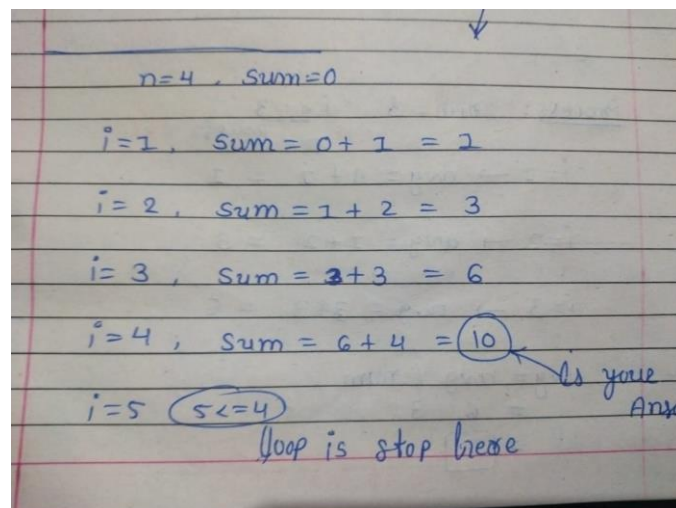 n=4, Sum=0
i=1, Sum = 0+ 1 = 1
i= 2, Sum = 1 + 2 = 3
i= 3, Sum = 3+3 = 6
i=4, Sum = 6+ 4 = 10
is your
Ans
i=5 5<=4
loop is stop here